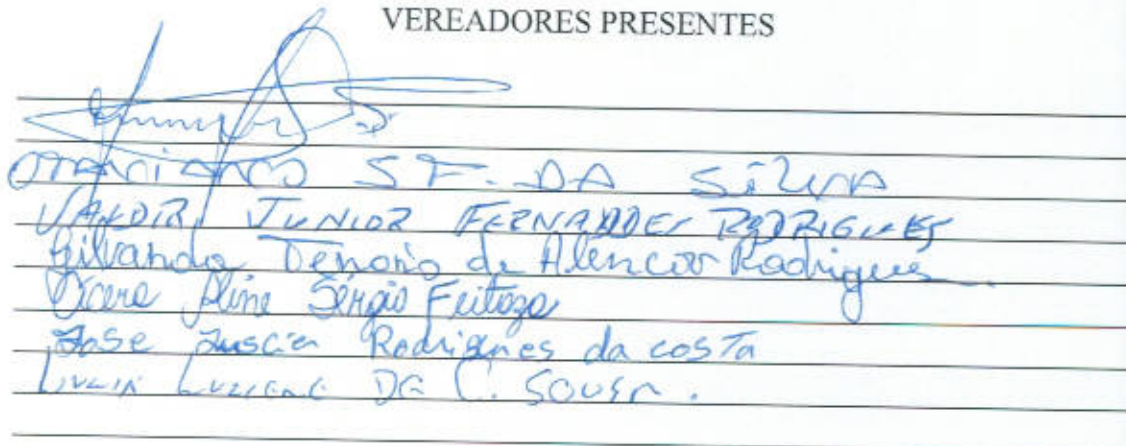 VEREADORES PRESENTES
OTACIANO S F. DA SILVA
VANDIR JUNIOR FERNANDES RODRIGUES
Gilvanda Tenorio de Alencar Rodrigues
Cicera Aline Sérgio Feitoza
Jose Luscien Rodrigues da cosTa
LUZIA LUZIENE DE C. SOUSA.